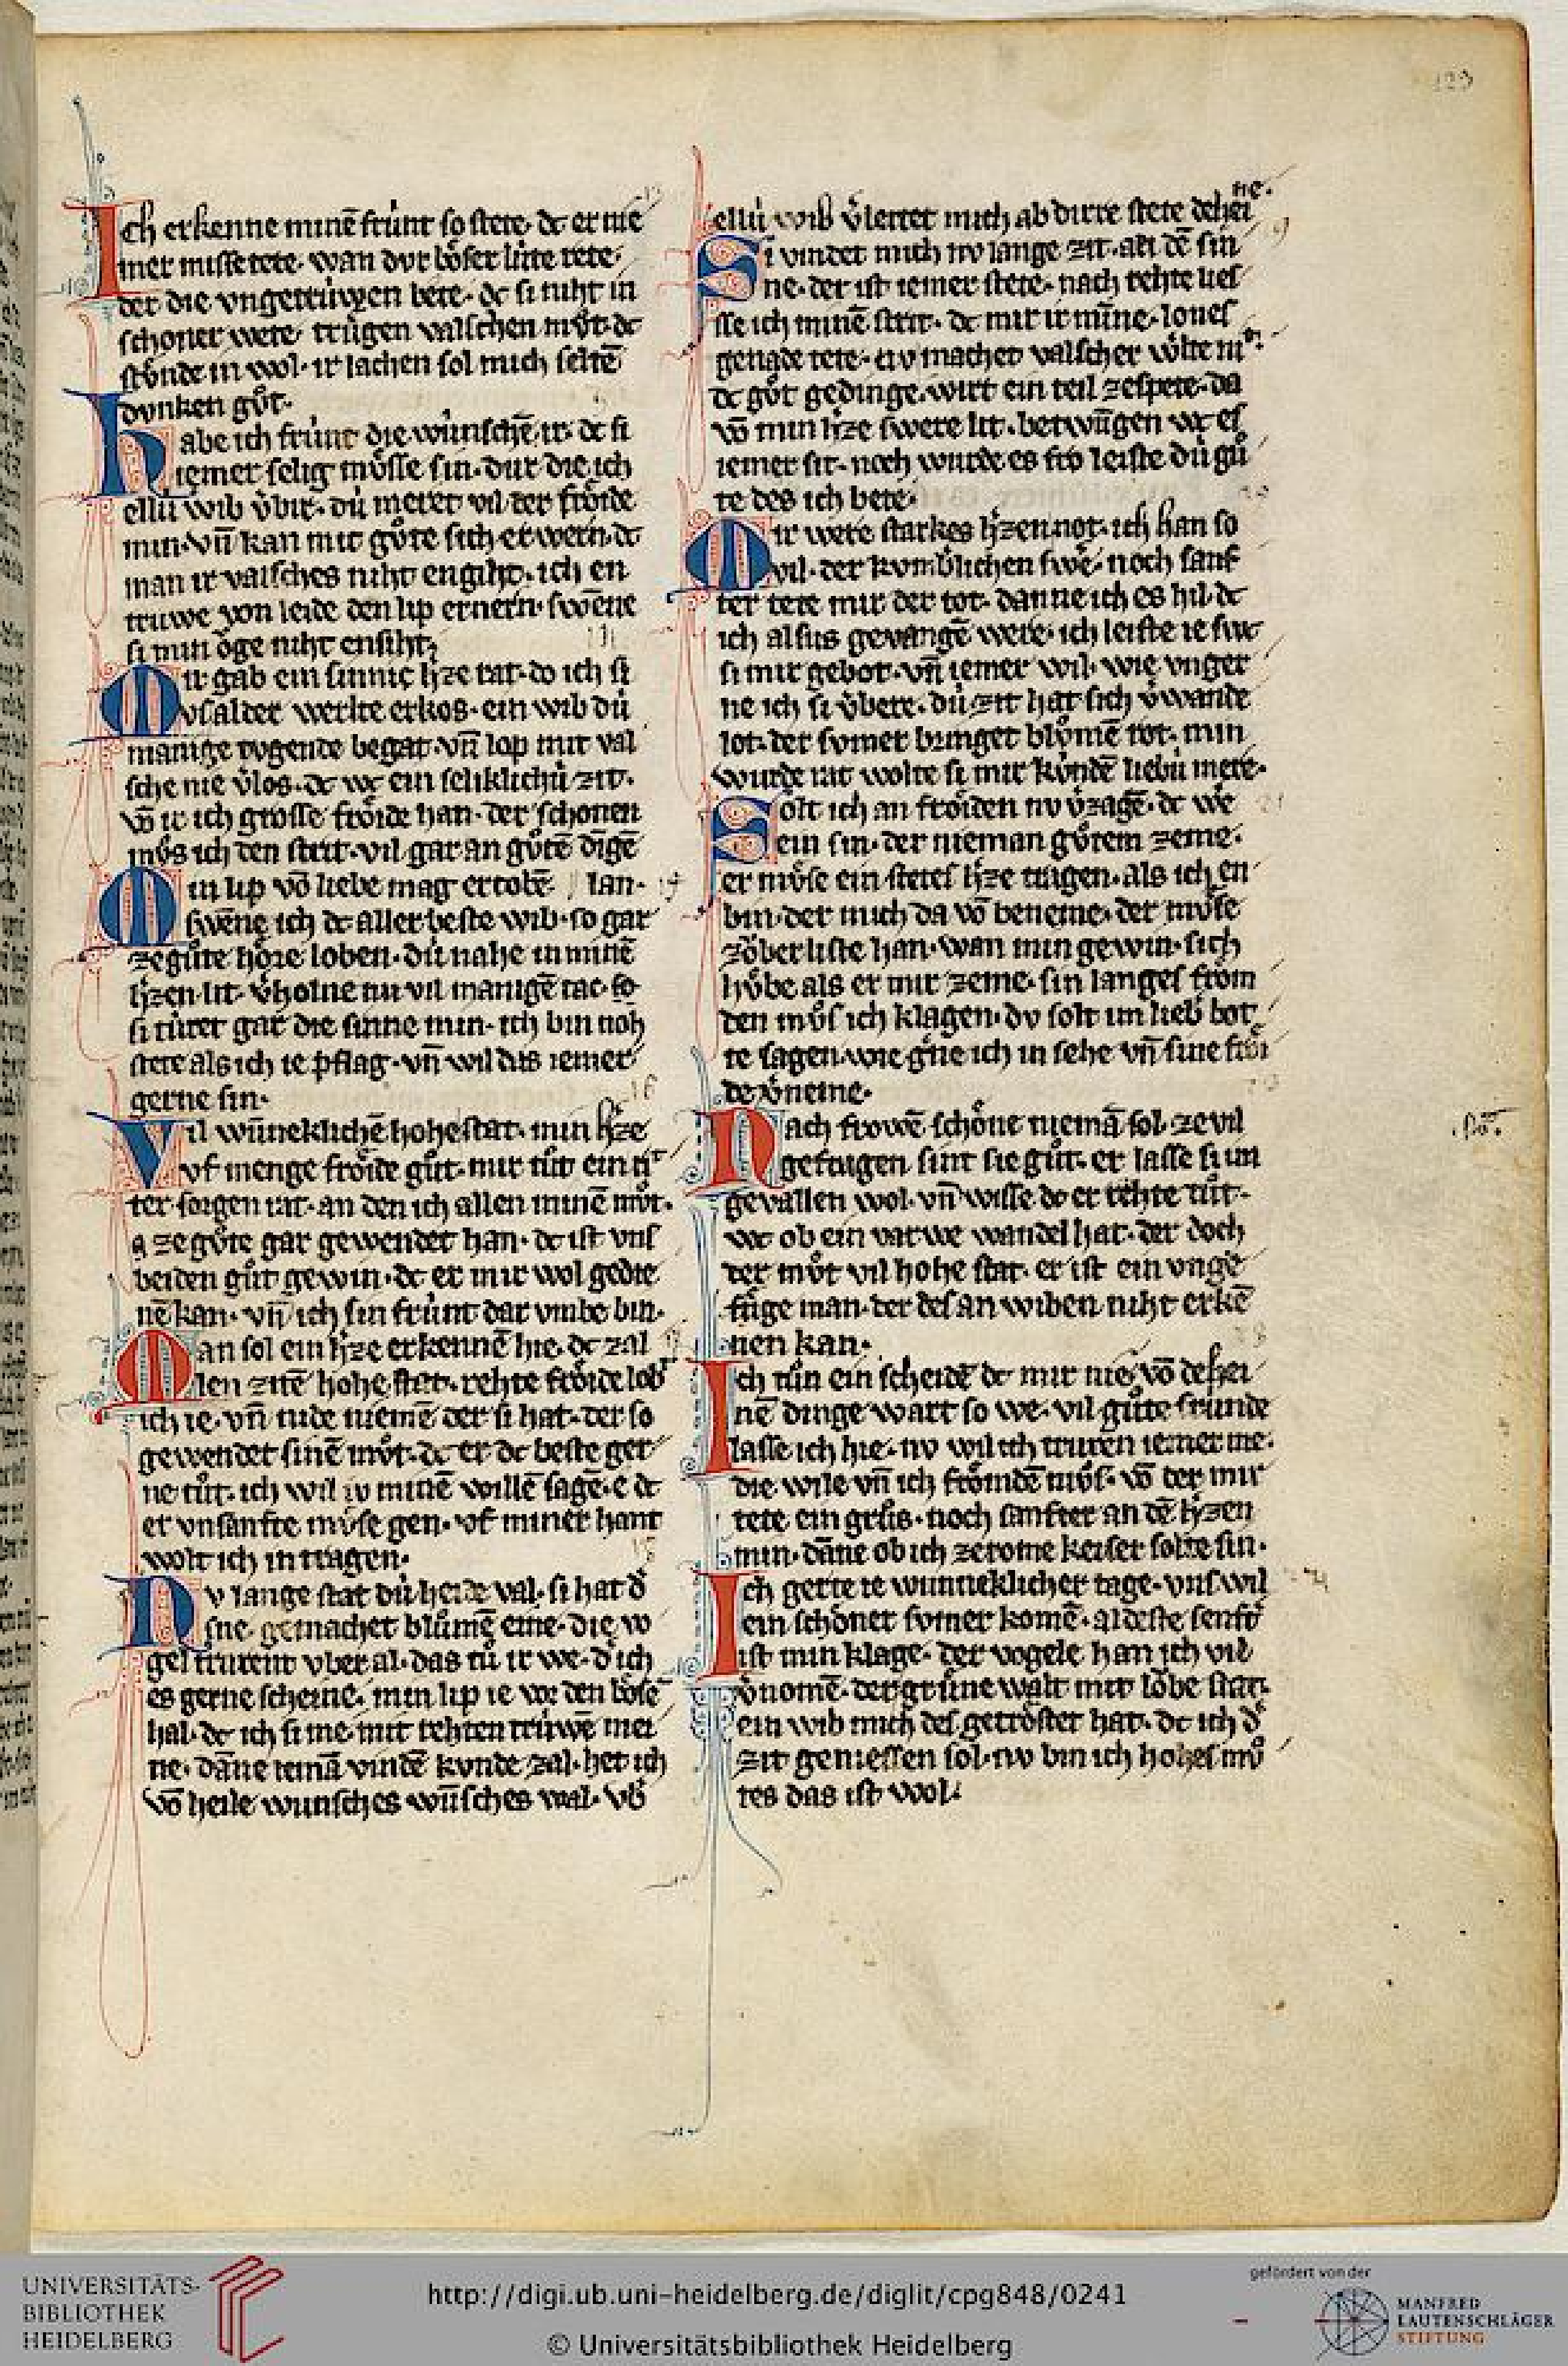 123
Ich erkenne minē frúnt so stete· dc er nie
mer missetete· wan dvr bôser lúte rete·
der die vngetrúwen bete· dc si niht in
schoner wete· trůgen valschen můt· dc
stůnde in wol· ir lachen sol mich seltē
dvnken gůt·
Habe ich frúnt die wúnschē ir· dc si
iemer selig můsse sin· dur die ich
ellú wib v̄bir· dú meret vil der frôide
min· vn̄ kan mit gůte sich erwern· dc
man ir valsches niht engiht· ich en
truwe von leide den lip ernern· swēne
si min ôge niht ensiht·
Mir gab ein sinnic hˢze rat· do ich si
vsal der werlte erkos· ein wib dú
manige tvgende begat· vn̄ lop mit val
sche nie v̄los· dc wc ein seliklichú zit·
vō ir ich grosse frôide han· der schonen
můs ich den strit· vil gar an gůtē dīgē
lan·
Min lip vō liebe mag ertobē·
swēne ich dc aller beste wib· so gar
ze gůte hôre loben· dú nahe in minē
hˢzen lit· v̄holne nu vil manigē tac· so
si túret gar die sinne min· ich bin noh
stete als ich ie pflag· vn̄ wil das iemer
gerne sin·
Vil wūneklichē hohe stat· min hˢze
vf menge frôide gůt· mir tůt ein ri
ter sorgen rat· an den ich allen minē můt·
a ze gůte gar gewendet han· dc ist vns
beiden gůt gewin· dc er mir wol gedie
nē kan· vn̄ ich sin frúnt dar vmbe bin·
Man sol ein hˢze erkennē hie· dc zal
len zitē hohe stat· rehte frôide lobt
ich ie· vn̄ nide niemē der si hat· der so
gewendet sinē můt· dc er dc beste ger
ne tůt· ich wil iv minē willē sagē· e dc
er vnsanfte můse gen· vf miner hant
wolt ich in tragen·
Nv lange stat dú heide val· si hat d̄
sne gemachet blůmē eine· die vo
gel trurent vber al· das tů ir we· d̄ ich
es gerne scheine· min lip ie vor den bôsē
hal· dc ich si me mit rehten trúwē mei
ne· dāne iemā vindē kvnde zal· het ich
vō heile wunsches wūsches wal· vb̄
ne·
ellú wib v̄leitet mich ab dirre stete dehei
Si vindet mich nv lange zit· an dē sin
ne· der ist iemer stete· nach rehte lies
sse ich minē strit· dc mir ir mīne· lones
genade tete· nv machet valscher wˢlte nit·
dc gůt gedinge· wirt ein teil ze spete· da
vō min hˢze swere lit· betwūgen wc es
iemer sit· noch wurde es fro leiste dú gů
te des ich bete·
Mir were starkes hˢzen not· ich han so
vil· der kvmblichen swe· noch sanf
ter tete mir der tot· danne ich es hil· dc
ich alsus gevangē were· ich leiste ie swc
si mir gebot· vn̄ iemer wil· wie vnger
ne ich si v̄bere· dú zit hat sich v̄wande
lot· der svmer bringet blůmē rot· min
wurde rat wolte si mir kúndē liebú mere·
Solt ich an frôiden nv v̄zagē· dc we
ein sin· der nieman gůtem zeme·
er můse ein stetes hˢze tragen· als ich en
bin· der mich da vō beneme· der můse
zôberliste han· wan min gewin· sich
hůbe als er mir zeme· sin langes frôm
den můs ich klagen· dv solt im lieb bot
te sagen· wie gˢne ich in sehe vn̄ sine frôi
de v̄neme·
Nach frowē schône niemā sol· ze vil
gefragen· sint sie gůt· er lasse si im
gevallen wol· vn̄ wisse dc er rehte tůt·
wc ob ein varwe wandel hat· der doch
der můt vil hohe stat· er ist ein vnge
fůge man· der des an wiben niht erkē
nen kan·
Ich tůn ein scheidē dc mir nie· vō dehei
nē dinge wart so we· vil gůte frúnde
lasse ich hie· nv wil ich truren iemer me·
die wile vn̄ ich frômdē můs· vō der mir
tete ein grůs· noch sanfter an dē hˢzen
min· dāne ob ich ze rome keiser solte sin·
Ich gerte ie wunneklicher tage· vns wil
ein schôner svmer komē· al deste senft̄
ist min klage· der vogele han ich vil
v̄nomē· der grůne walt mit lôbe stat·
ein wib mich des getrôstet hat· dc ich d̄
zit geniessen sol· nv bin ich hohes mů
tes das ist wol·
UNIVERSITÄTS-
BIBLIOTHEK
HEIDELBERG
http://digi.ub.uni-heidelberg.de/diglit/cpg848/0241
© Universitätsbibliothek Heidelberg
gefördert von der
MANFRED
LAUTENSCHLÄGER
STIFTUNG